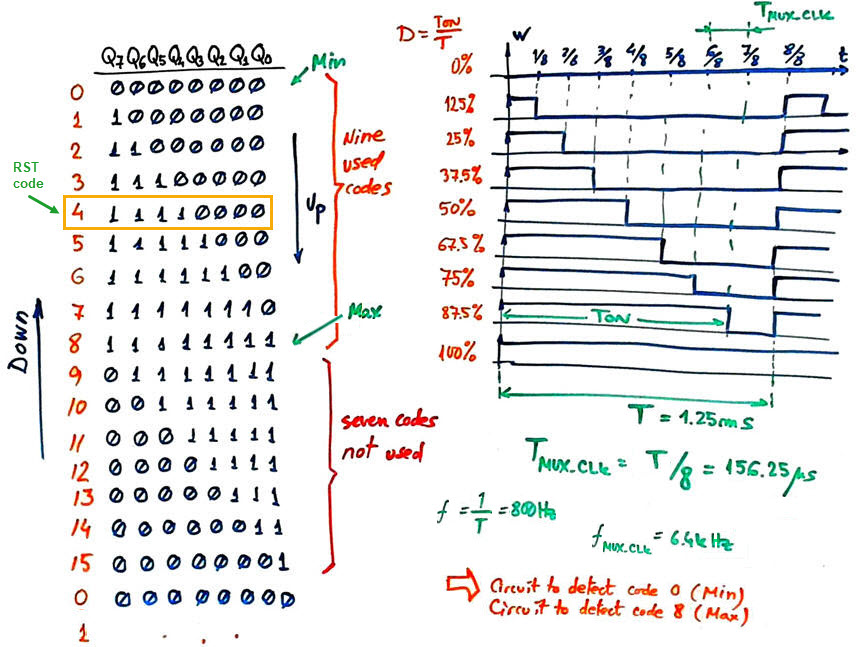 Q7 Q6 Q5 Q4 Q3 Q2 Q1 Q0
0 0 0 0 0 0 0 0 0
1 1 0 0 0 0 0 0 0
2 1 1 0 0 0 0 0 0
3 1 1 1 0 0 0 0 0
4 1 1 1 1 0 0 0 0
5 1 1 1 1 1 0 0 0
6 1 1 1 1 1 1 0 0
7 1 1 1 1 1 1 1 0
8 1 1 1 1 1 1 1 1
9 0 1 1 1 1 1 1 1
10 0 0 1 1 1 1 1 1
11 0 0 0 1 1 1 1 1
12 0 0 0 0 1 1 1 1
13 0 0 0 0 0 1 1 1
14 0 0 0 0 0 0 1 1
15 0 0 0 0 0 0 0 1
0 0 0 0 0 0 0 0 0
1 . . .
RST
code
Down
Min
Up
Max
Nine
used
codes
seven codes
not used
D = TON/T
TMUX_CLK
W
1/8 2/8 3/8 4/8 5/8 6/8 7/8 8/8 t
0%
125%
25%
37.5%
50%
67.5%
75%
87.5%
TON
100%
T = 1.25ms
TMUX_CLK = T/8 = 156.25 µs
f = 1/T = 800Hz
fMUX_CLK = 6.4kHz
⇒ Circuit to detect code 0 (Min)
Circuit to detect code 8 (Max)